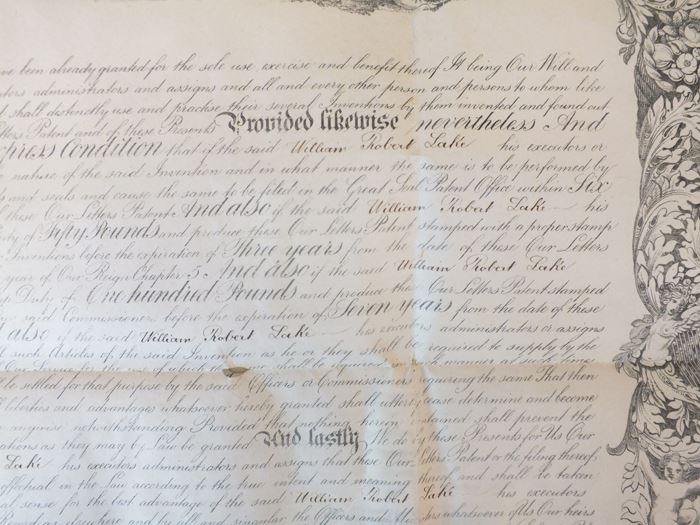 ve been already granted for the sole use exercise and benefit thereof It being Our Will and
tors administrators and assigns and all and every other person and persons to whom like
t shall distinctly use and practise their several Inventions by them invented and found out
tters Patent and of these Presents Provided likewise nevertheless And
press Condition that if the said William Robert Lake his executors or
e nature of the said Invention and in what manner the same is to be performed by
ds and seals and cause the same to be filed in the Great Seal Patent Office within Six
f these Our Letters Patent And also if the said William Robert Lake his
ty of Fifty Pounds and produce these Our Letters Patent stamped with a proper stamp
Inventions before the expiration of Three years from the date of these Our Letters
year of Our Reign Chapter 5 And also if the said William Robert Lake
p Duty of One hundred Pounds and produce the Our Letters Patent stamped
said Commissioners before the expiration of Seven years from the date of these
d also if the said William Robert Lake his executors administrators or assigns
l such Articles of the said Invention as he or they shall be required to supply by the
Our Service for the use of which shall be required in manner at such times
to be settled for that purpose by the said Officers or Commissioners requiring the same That then
l liberties and advantages whatsoever hereby granted shall utterly cease determine and become
anywise notwithstanding Provided that nothing herein contained shall prevent the
ations as they may by Law be granted And lastly We do by these Presents for Us Our
Lake his executors administrators and assigns that these Our Letters Patent or the filing thereof
effectual in the Law according to the true intent and meaning thereof and shall be taken
al sense for the best advantage of the said William Robert Lake his executors
as elsewhere and by all and singular the Officers and whatsoever of Us Our heirs